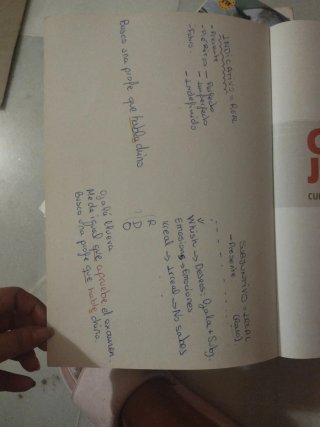 INDICATIVO = REAL
- Presente
- Pretérito - Perfecto
- Imperfecto
- Indefinido
- Futuro
Busco una profe que habla chino
SUBJUNTIVO = IRREAL
- Presente
W
Whish → Deseos: Ojalá + Subj.
E
Emosions → Emociones
I
Irreal → Irreal → No sabes
R
D
O
Ojalá llueva
Me da igual que apruebe el examen
Busco una profe que hable chino